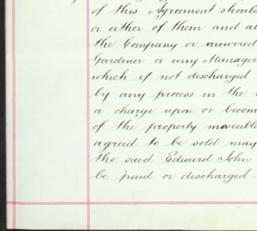 of this Agreement should
or either of them and
the Company or incurred
Gardiner or any Manager
which if not discharged
by any process in the
a charge upon or becom
of the property moveable
agreed to be sold may
the said Edward John
be paid or discharged